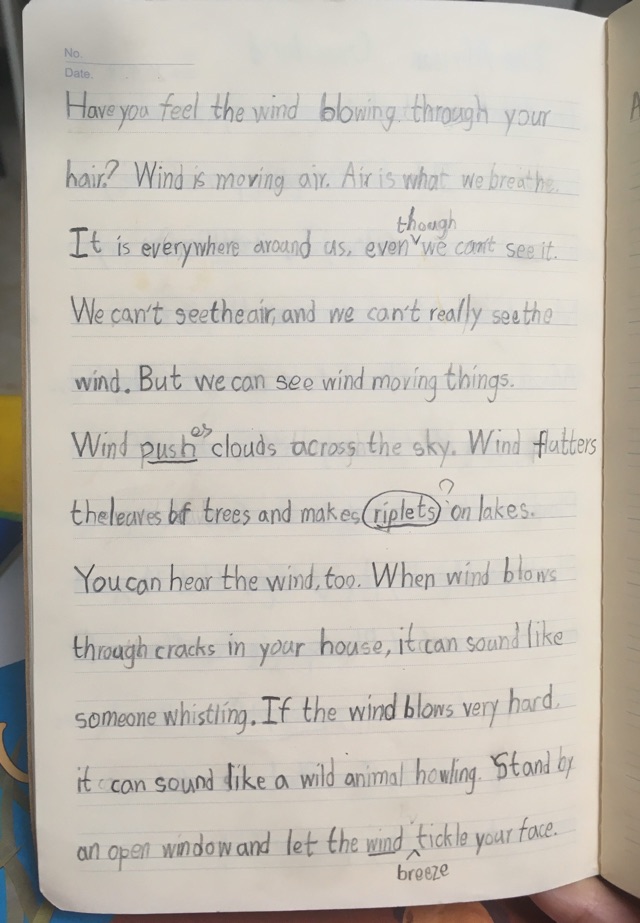 No.
Date.
Have you feel the wind blowing through your
hair? Wind is moving air. Air is what we breathe.
though
It is everywhere around us, even we can't see it.
We can't see the air, and we can't really see the
wind. But we can see wind moving things.
es
Wind push clouds across the sky. Wind flutters
?
the leaves of trees and makes riplets on lakes.
You can hear the wind, too. When wind blows
through cracks in your house, it can sound like
someone whistling. If the wind blows very hard,
it can sound like a wild animal howling. Stand by
an open window and let the wind tickle your face.
breeze